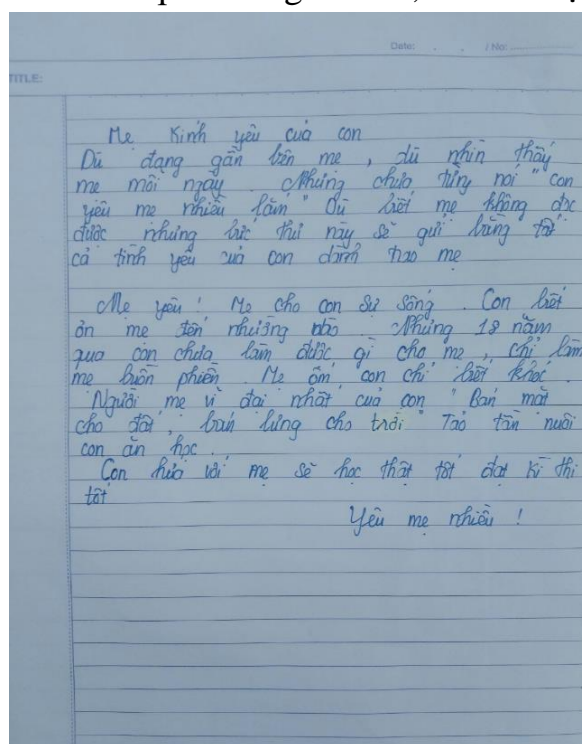 Date: . . / No:
TITLE:
Mẹ kính yêu của con
Dù đang gần bên mẹ, dù nhìn thấy
mẹ mỗi ngày. Nhưng chưa từng nói "con
yêu mẹ nhiều lắm" Dù biết mẹ không đọc
được nhưng bức thư này sẽ gửi bằng tất
cả tình yêu của con dành trao mẹ
Mẹ yêu! Mẹ cho con sự sống. Con biết
ơn mẹ đến nhường nào. Nhưng 18 năm
qua con chưa làm được gì cho mẹ, chỉ làm
mẹ buồn phiền. Mẹ ốm con chỉ biết khóc.
Người mẹ vĩ đại nhất của con "Bán mặt
cho đất, bán lưng cho trời" Tảo tần nuôi
con ăn học.
Con hứa với mẹ sẽ học thật tốt đạt kì thi
tốt
Yêu mẹ nhiều!